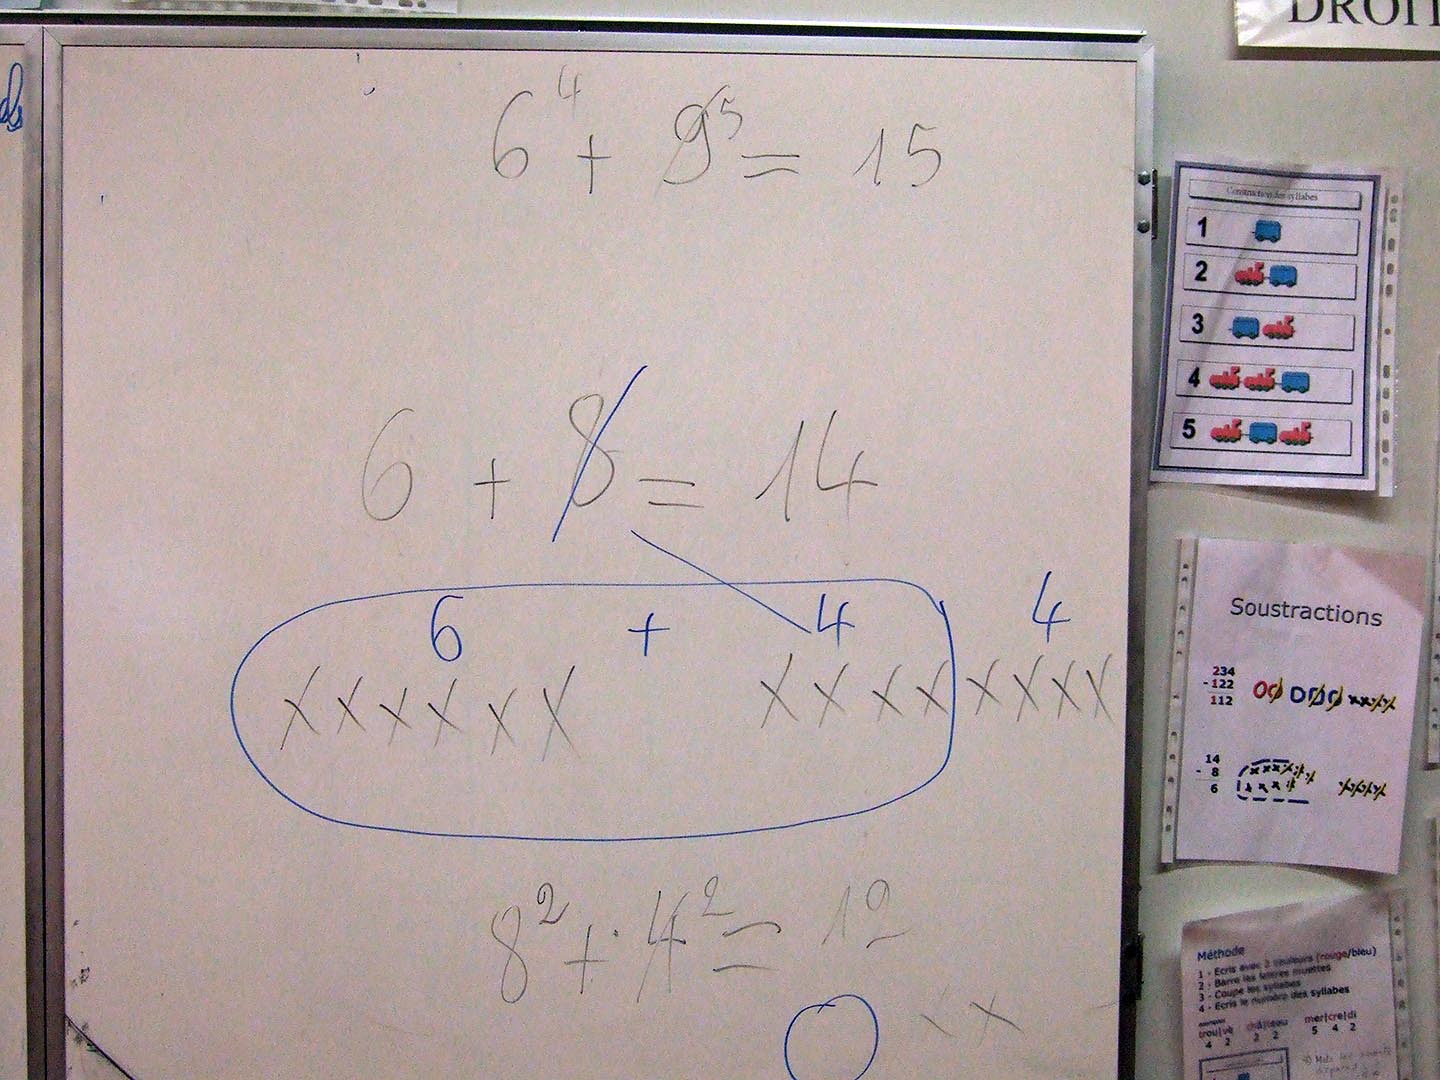 DROIT
6⁴ + 9⁵ = 15
6 + 8 = 14
6 + 4 4
x x x x x x x x x x x x x x
8² + 4² = 12
x x
Construction des syllabes
1
2
3
4
5
Soustractions
234
- 122
112
14
- 8
6
Méthode
1 - Ecris avec 2 couleurs (rouge/bleu)
2 - Barre les lettres muettes
3 - Coupe les syllabes
4 - Ecris le numéro des syllabes
trou|ve châ|teau mer|cre|di
4 2 2 2 5 4 2